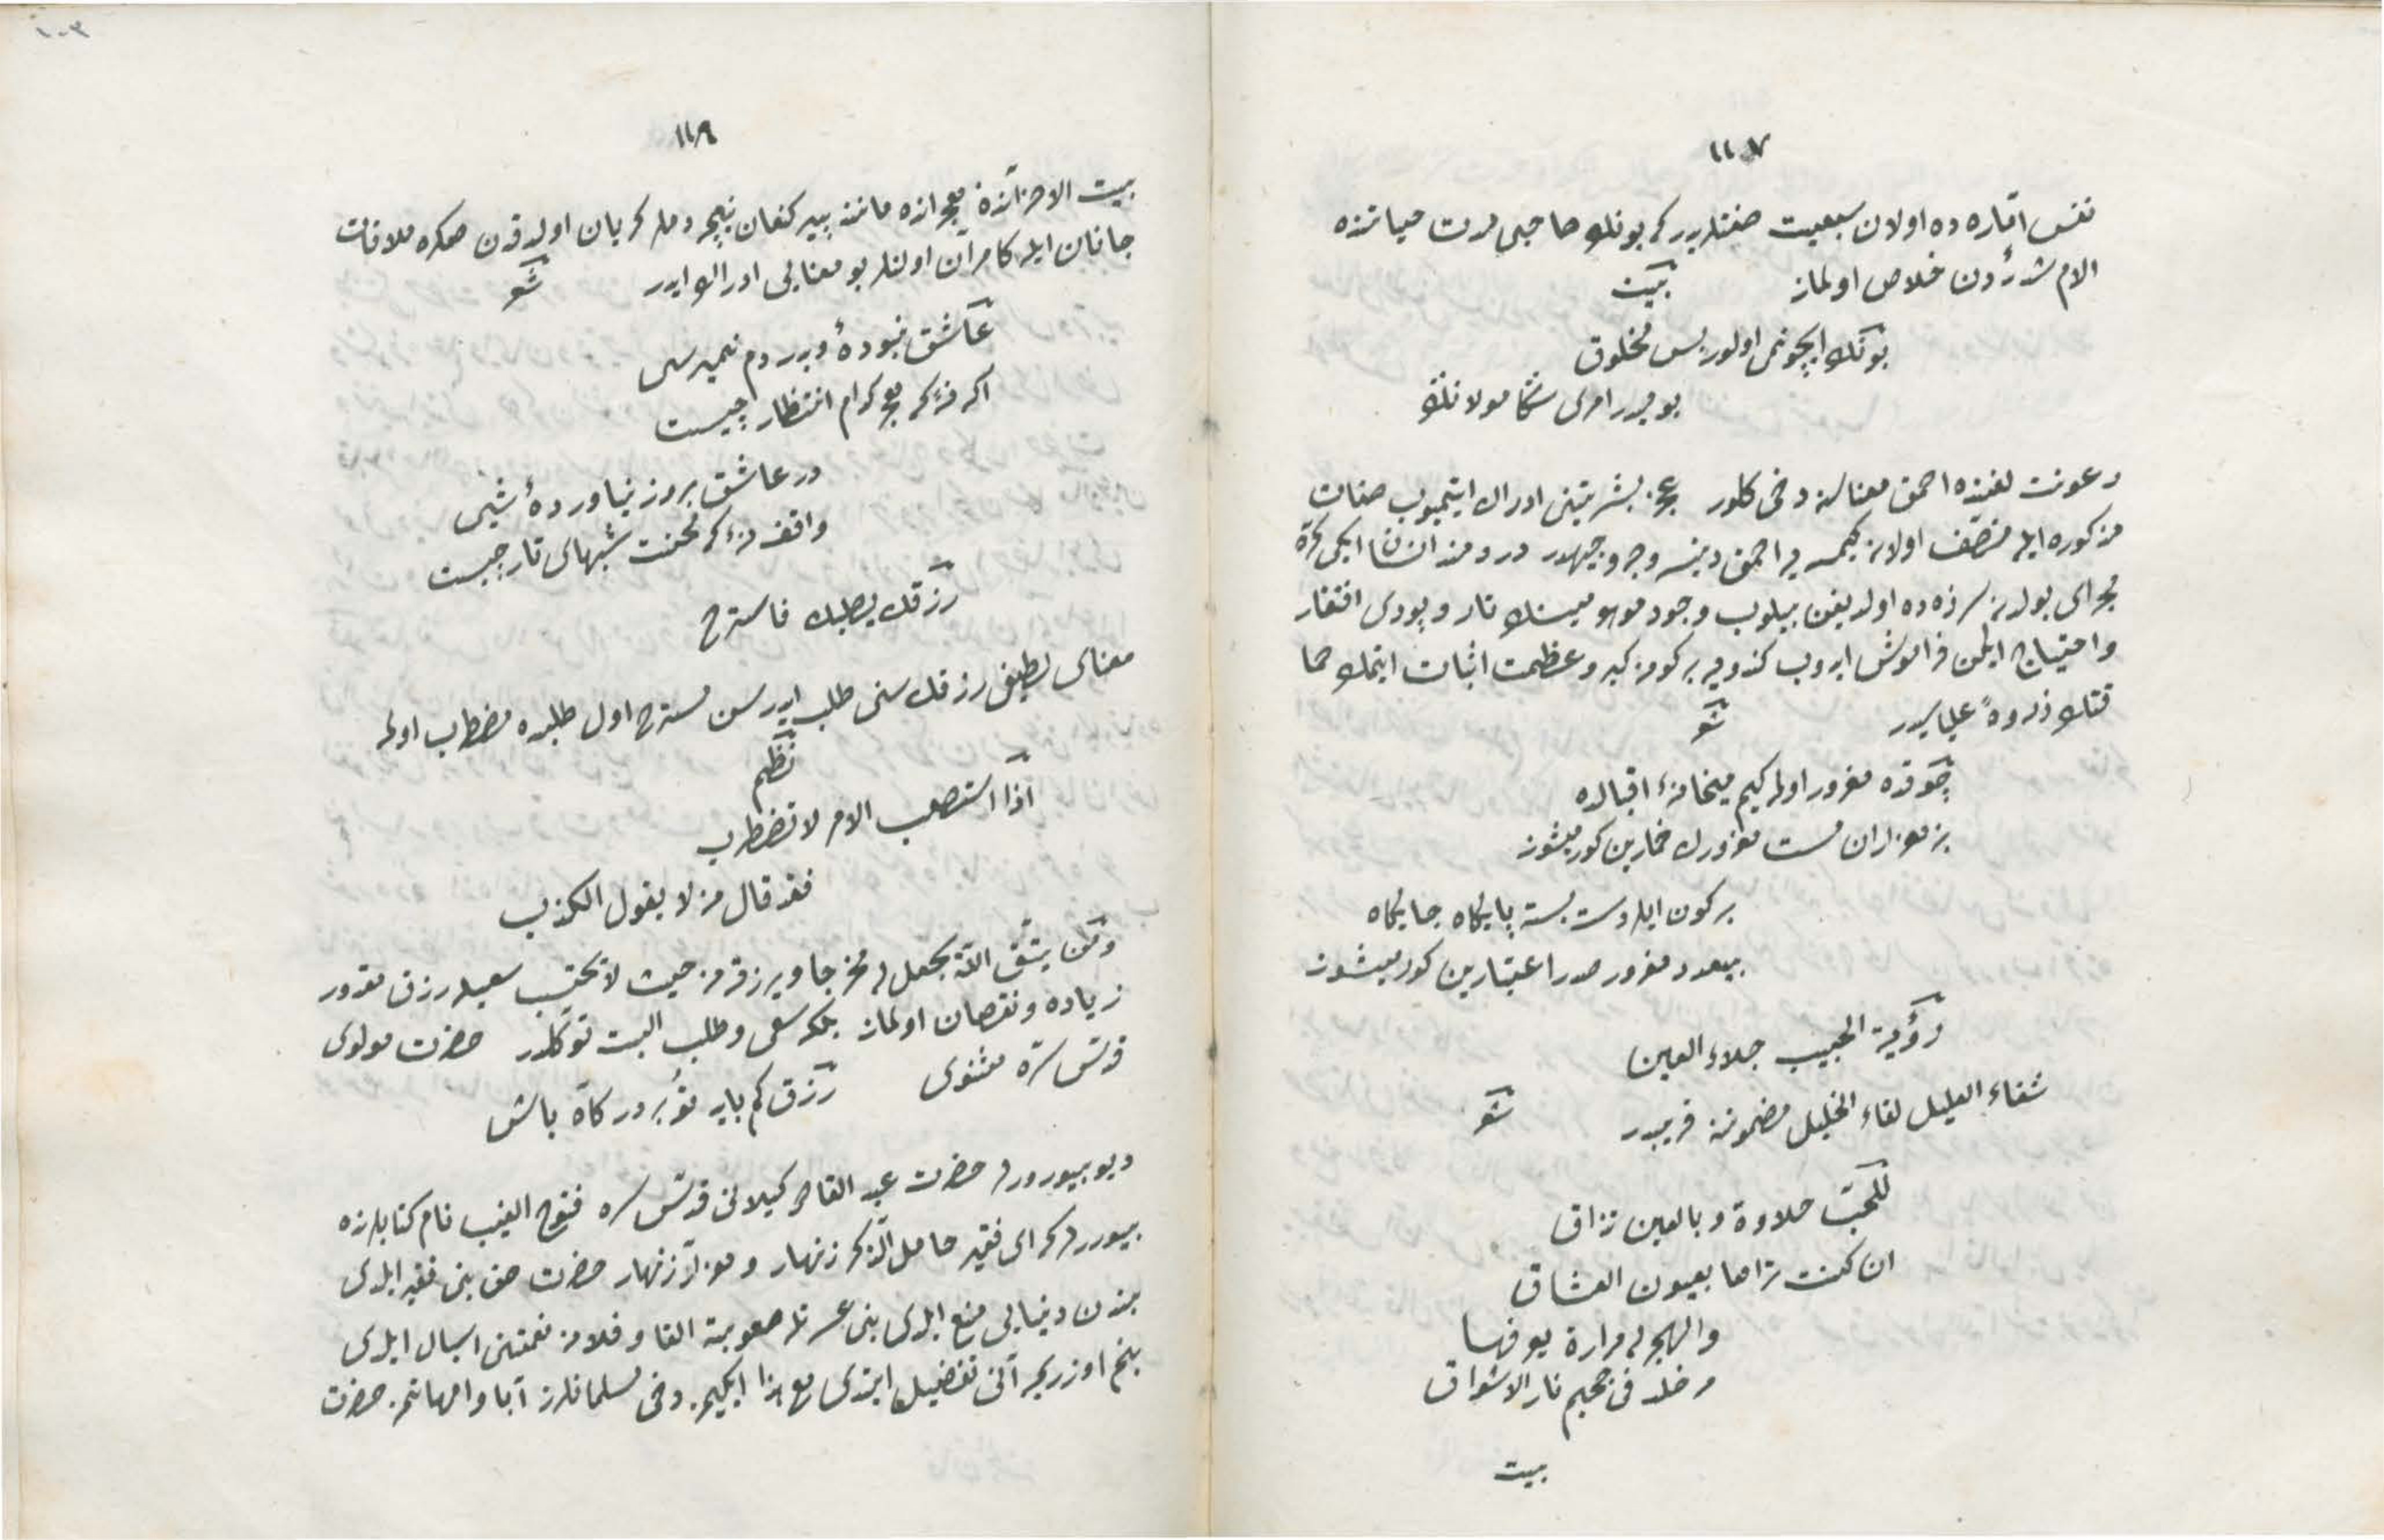 ١١٧
نفس اماره ده اولان سبعيت صفتلريدر كه بونلرك صاحبى لذت حياتنده
الام شدّتدن خلاص اولماز بيت
بونك ايچونمى اولور بس مخلوق
بوميدر امرى سكا مولانك
رعونت لغتنده احمق معناسنه دخى كلور عجز بشريتنى ادراك ايتميوب صفات
مذكوره ايله متصف اولان كيمسه يه احمق دينسه وجه وجيهدر دردمند انسان ايكى كره
مجراى بولدن لرزه ده اولديغن بيلوب وجود موهومينك تار وپودى افتقار
واحتياج ايكن فراموش ايدوب كندويه بركونه كبر وعظمت اثبات ايتمك حما
قتك ذروهٔ علياسيدر شعر
چوقده مغرور اولمه كيم ميخانهٔ اقبالده
بز هزاران مست مغرورك خمارين كورمشوز
بر كون ايلر دست بسته پايكاه جايكاه
بيعدد مغرور صدر اعتبارين كورمشوز
رؤية الحبيب جلاء العين
شفاء العليل لقاء الخليل مضمونه قريبدر شعر
للحبّ حلاوة وبالعين تذاق
ان كنت تراها بعيون العشاق
والهجر له مرارة يعرفها
من خلد فى جحيم نار الاشواق
بيت
١١٨
بيت الاحزانده هجرانده مانند پير كنعان نيجه دملر كريان اولدقدن صكره ملاقات
جانان ايله كامران اولنلر بو معنايى ادراك ايدر شعر
عاشق نبودهٔ وبدردم نميرسى
اكه نهٔ كه هجر كدام انتظار چيست
در عاشقى بروز نياوردهٔ شبى
واقف نهٔ كه محنت شبهاى تار چيست
رزقك يطلبك فاسترح
معناى لطيفى رزقك سنى طلب ايدر سن مستريح اول طلبده مضطرب اولمه
نظم
اذا استصعب الامر لا تضطرب
فقد قال من لا يقول الكذب
ومن يتّق الله يجعل له مخرجا ويرزقه من حيث لا يحتسب سعيله رزق مقدور
زياده ونقصان اولماز بلكه سعى وطلب البت توكلدر حضرت مولوى
قدّس سرّه مثنوى رزق كم يابد تو بر دركاه باش
ديو بيورور حضرت عبد القادر كيلانى قدّس سره فتوح الغيب نام كتابلرنده
بيوررلر كه اى فقير حامل الذكر زنهار وهزار زنهار حضرت حق بنى فقير ايلدى
بندن دنيايى منع ايلدى بنى عسرتلر صعوبته القا وفلانه نعمتنى اسبال ايلدى
بنم اوزريمه آنى تفضيل ايتدى مع هذا ايكيمز دخى مسلمانلرز آبا وامهاتمز حضرت